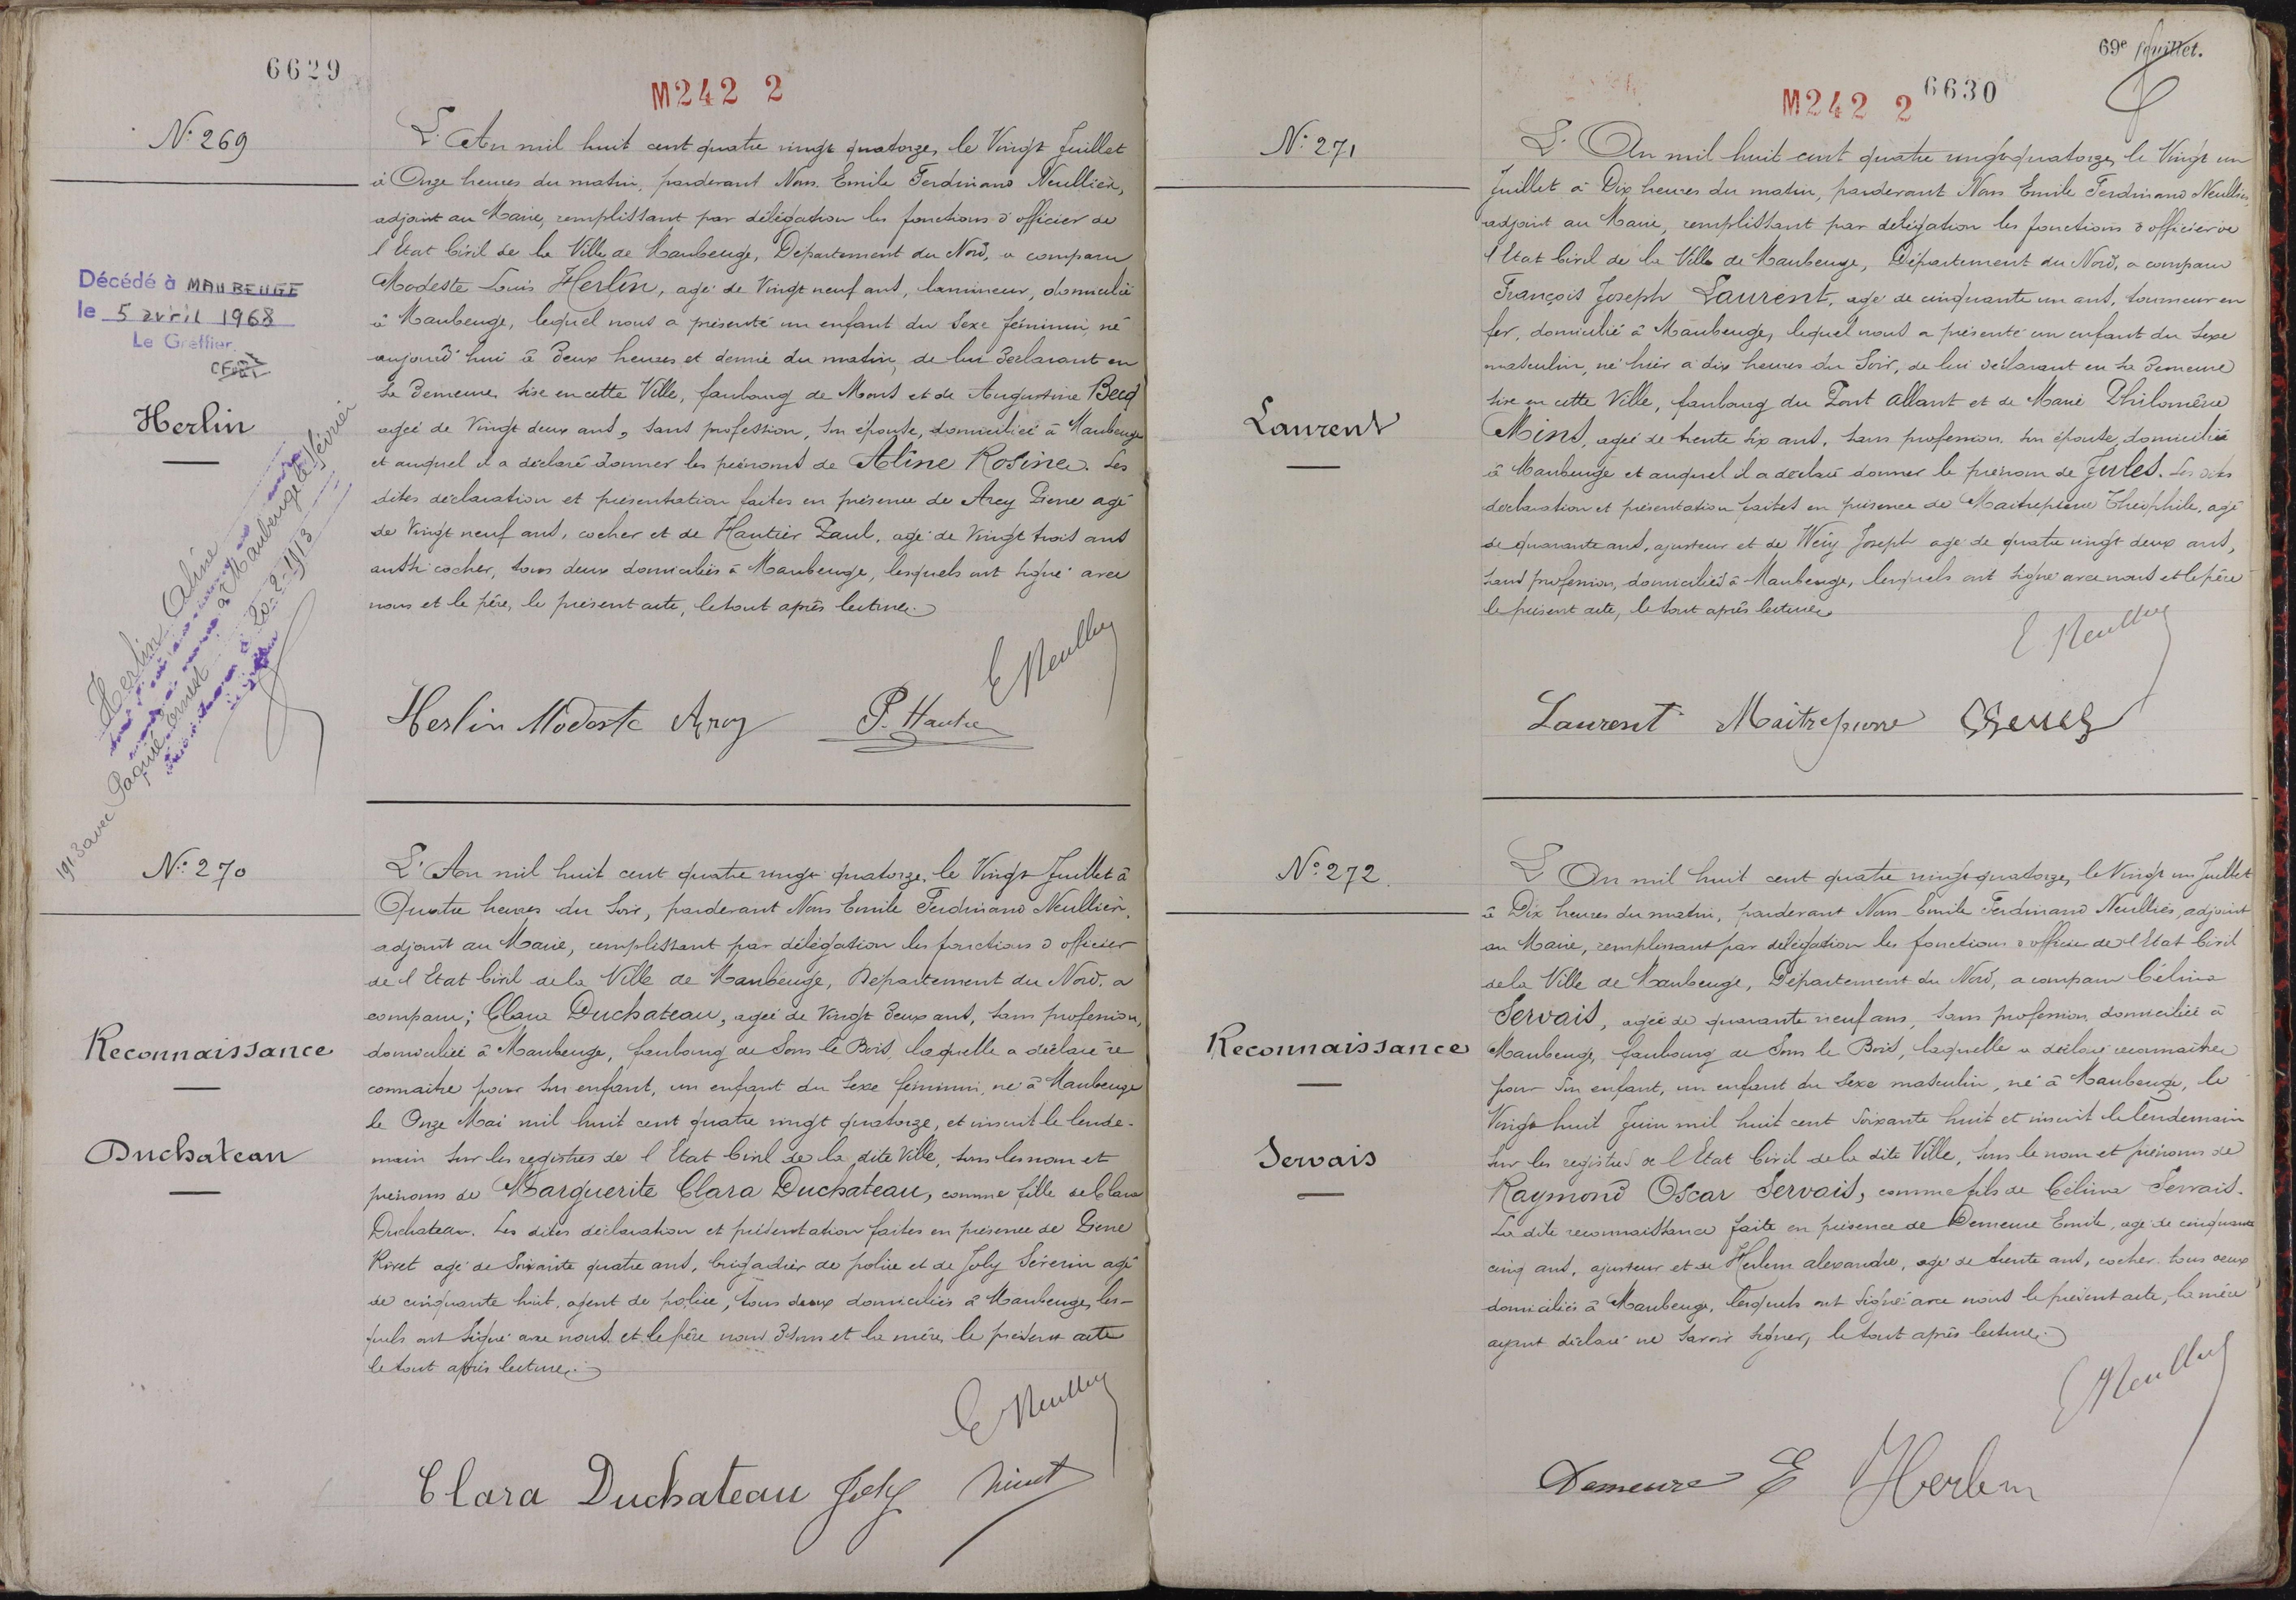 6629
M242 2
N° 269
L'An mil huit cent quatre vingt quatorze, le Vingt Juillet
à Onze heures du matin, pardevant Nous Emile Ferdinand Neullier,
adjoint au Maire, remplissant par délégation les fonctions d'officier de
l'Etat Civil de la Ville de Maubeuge, Département du Nord, a comparu
Modeste Louis Herlin, agé de Vingt neuf ans, lamineur, domicilié
à Maubeuge, lequel nous a présenté un enfant du Sexe féminin, né
aujourd'hui à deux heures et demie du matin, de lui déclarant en
sa demeure, sise en cette Ville, faubourg de Mons et de Augustine Becq
agée de Vingt deux ans, sans profession, son épouse, domiciliée à Maubeuge
et auquel il a déclaré donner les prénoms de Aline Rosine. Les
dites déclaration et présentation faites en présence de Arcy Pierre agé
de Vingt neuf ans, cocher et de Hautier Paul, agé de Vingt trois ans
aussi cocher, tous deux domiciliés à Maubeuge, lesquels ont signé avec
nous et le père, le présent acte, le tout après lecture.
Décédé à MAUBEUGE
le 5 avril 1968
Le Greffier,
Herlin
Herlin Aline
à Maubeuge le février
1913 avec Paquie Ernest
20-2-1913
E Neullier
Herlin Modeste Arcy P. Hautier
N° 270
L'An mil huit cent quatre vingt quatorze, le Vingt Juillet à
Quatre heures du Soir, pardevant Nous Emile Ferdinand Neullier,
adjoint au Maire, remplissant par délégation les fonctions d'officier
de l'Etat Civil de la Ville de Maubeuge, Département du Nord, a
comparu; Clara Duchateau, agée de Vingt deux ans, sans profession,
domiciliée à Maubeuge, faubourg de Sous le Bois, laquelle a déclaré re
connaitre pour son enfant, un enfant du Sexe féminin, né à Maubeuge
le Onze Mai mil huit cent quatre vingt quatorze, et inscrit le lende-
main sur les registres de l'Etat Civil de la dite Ville, sous les nom et
prénoms de Marguerite Clara Duchateau, comme fille de Clara
Duchateau. Les dites déclaration et présentation faites en présence de Pierre
Rivet agé de Soixante quatre ans, brigadier de police et de Joly Séverin agé
de cinquante huit, agent de police, tous deux domiciliés à Maubeuge, les-
quels ont signé avec nous et la mère le présent acte
le tout après lecture.
Reconnaissance
Duchateau
E Neullier
Clara Duchateau Joly Rivet
69e feuillet.
6630
M242 2
N° 271
L'An mil huit cent quatre vingt quatorze, le Vingt un
Juillet à Dix heures du matin, pardevant Nous Emile Ferdinand Neullier,
adjoint au Maire, remplissant par délégation les fonctions d'officier de
l'Etat Civil de la Ville de Maubeuge, Département du Nord, a comparu
François Joseph Laurent, agé de cinquante un ans, tourneur en
fer, domicilié à Maubeuge, lequel nous a présenté un enfant du Sexe
masculin, né hier à dix heures du Soir, de lui déclarant en sa demeure
sise en cette Ville, faubourg du Pont allant et de Marie Philomène
Mins, agée de trente six ans, sans profession, son épouse, domiciliée
à Maubeuge et auquel il a déclaré donner le prénom de Jules. Les dites
déclaration et présentation faites en présence de Maitrepierre Théophile, agé
de quarante ans, ajusteur et de Wéry Joseph agé de quatre vingt deux ans,
sans profession, domiciliés à Maubeuge, lesquels ont signé avec nous et le père
le présent acte, le tout après lecture.
Laurent
E. Neullier
Laurent Maitrepierre
N° 272
L'An mil huit cent quatre vingt quatorze, le Vingt un Juillet
à Dix heures du matin, pardevant Nous Emile Ferdinand Neullier, adjoint
au Maire, remplissant par délégation les fonctions d'officier de l'Etat Civil
de la Ville de Maubeuge, Département du Nord, a comparu Célina
Servais, agée de quarante neuf ans, sans profession, domiciliée à
Maubeuge, faubourg de Sous le Bois, laquelle a déclaré reconnaitre
pour son enfant, un enfant du Sexe masculin, né à Maubeuge, le
Vingt huit Juin mil huit cent soixante huit et inscrit le lendemain
sur les registres de l'Etat Civil de la dite Ville, sous le nom et prénoms de
Raymond Oscar Servais, comme fils de Célina Servais.
La dite reconnaissance faite en présence de Demeure Emile, agé de cinquante
cinq ans, ajusteur et de Herlem alexandre, agé de trente ans, cocher, tous deux
domiciliés à Maubeuge, lesquels ont signé avec nous le présent acte, la mère
ayant déclaré ne savoir signer, le tout après lecture.
Reconnaissance
Servais
E Neullier
Demeure E Herlem